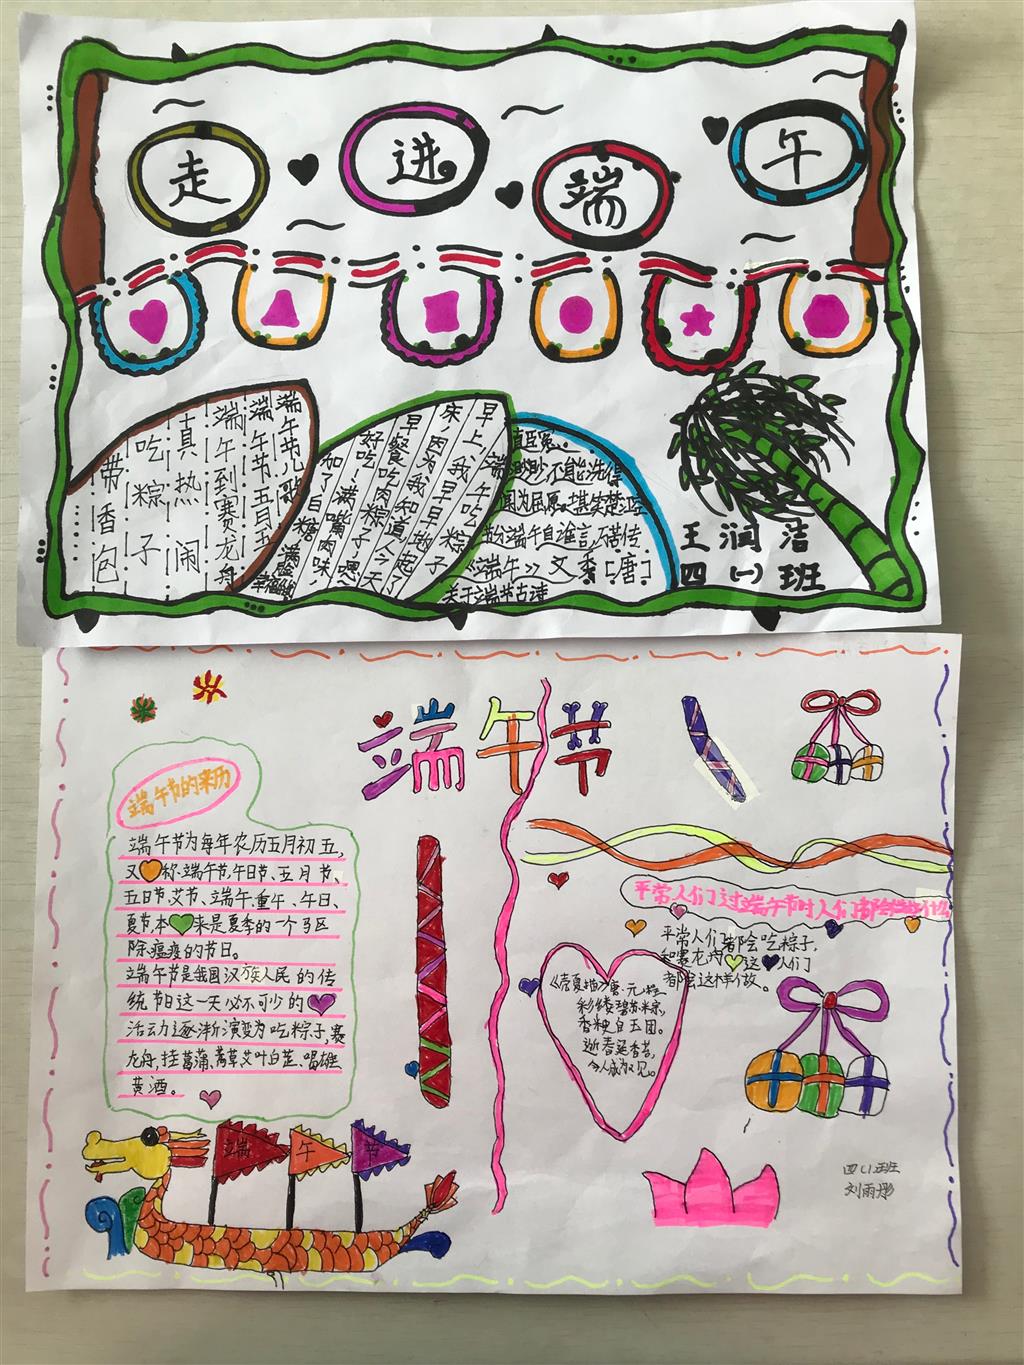 走进端午
端午节儿歌
端午节五月五
端午到赛龙舟
真热闹
吃粽子
带香包
早上,我端午吃粽子
床,因为我早早地起了
早餐吃肉粽子
我知道,今天
好吃!满嘴肉味,嗯
加了白糖
关于端午节古诗
《端午》文秀[唐]
节分端午自谁言,万古传
闻为屈原。堪笑楚江空
渺渺,不能洗得
直臣冤。
王润洁
四(一)班
端午节
端午节的来历
端午节为每年农历五月初五,
又称端午节,午日节、五月节、
五日节、艾节、端午、重午、午日、
夏节,本来是夏季的一个
除瘟疫的节日。
端午节是我国汉族人民的传
统节日这一天必不可少的
活动逐渐演变为吃粽子,赛
龙舟,挂菖蒲、蒿草、艾叶白芷、喝雄
黄酒。
平常人们过端午节时人们都会做什么
平常人们都会吃粽子,
和赛龙舟这人们
都会这样做。
唐·元稹
彩缕碧筠粽,
香粳白玉团。
逝者延香
端午节
四(1)班
刘雨彤